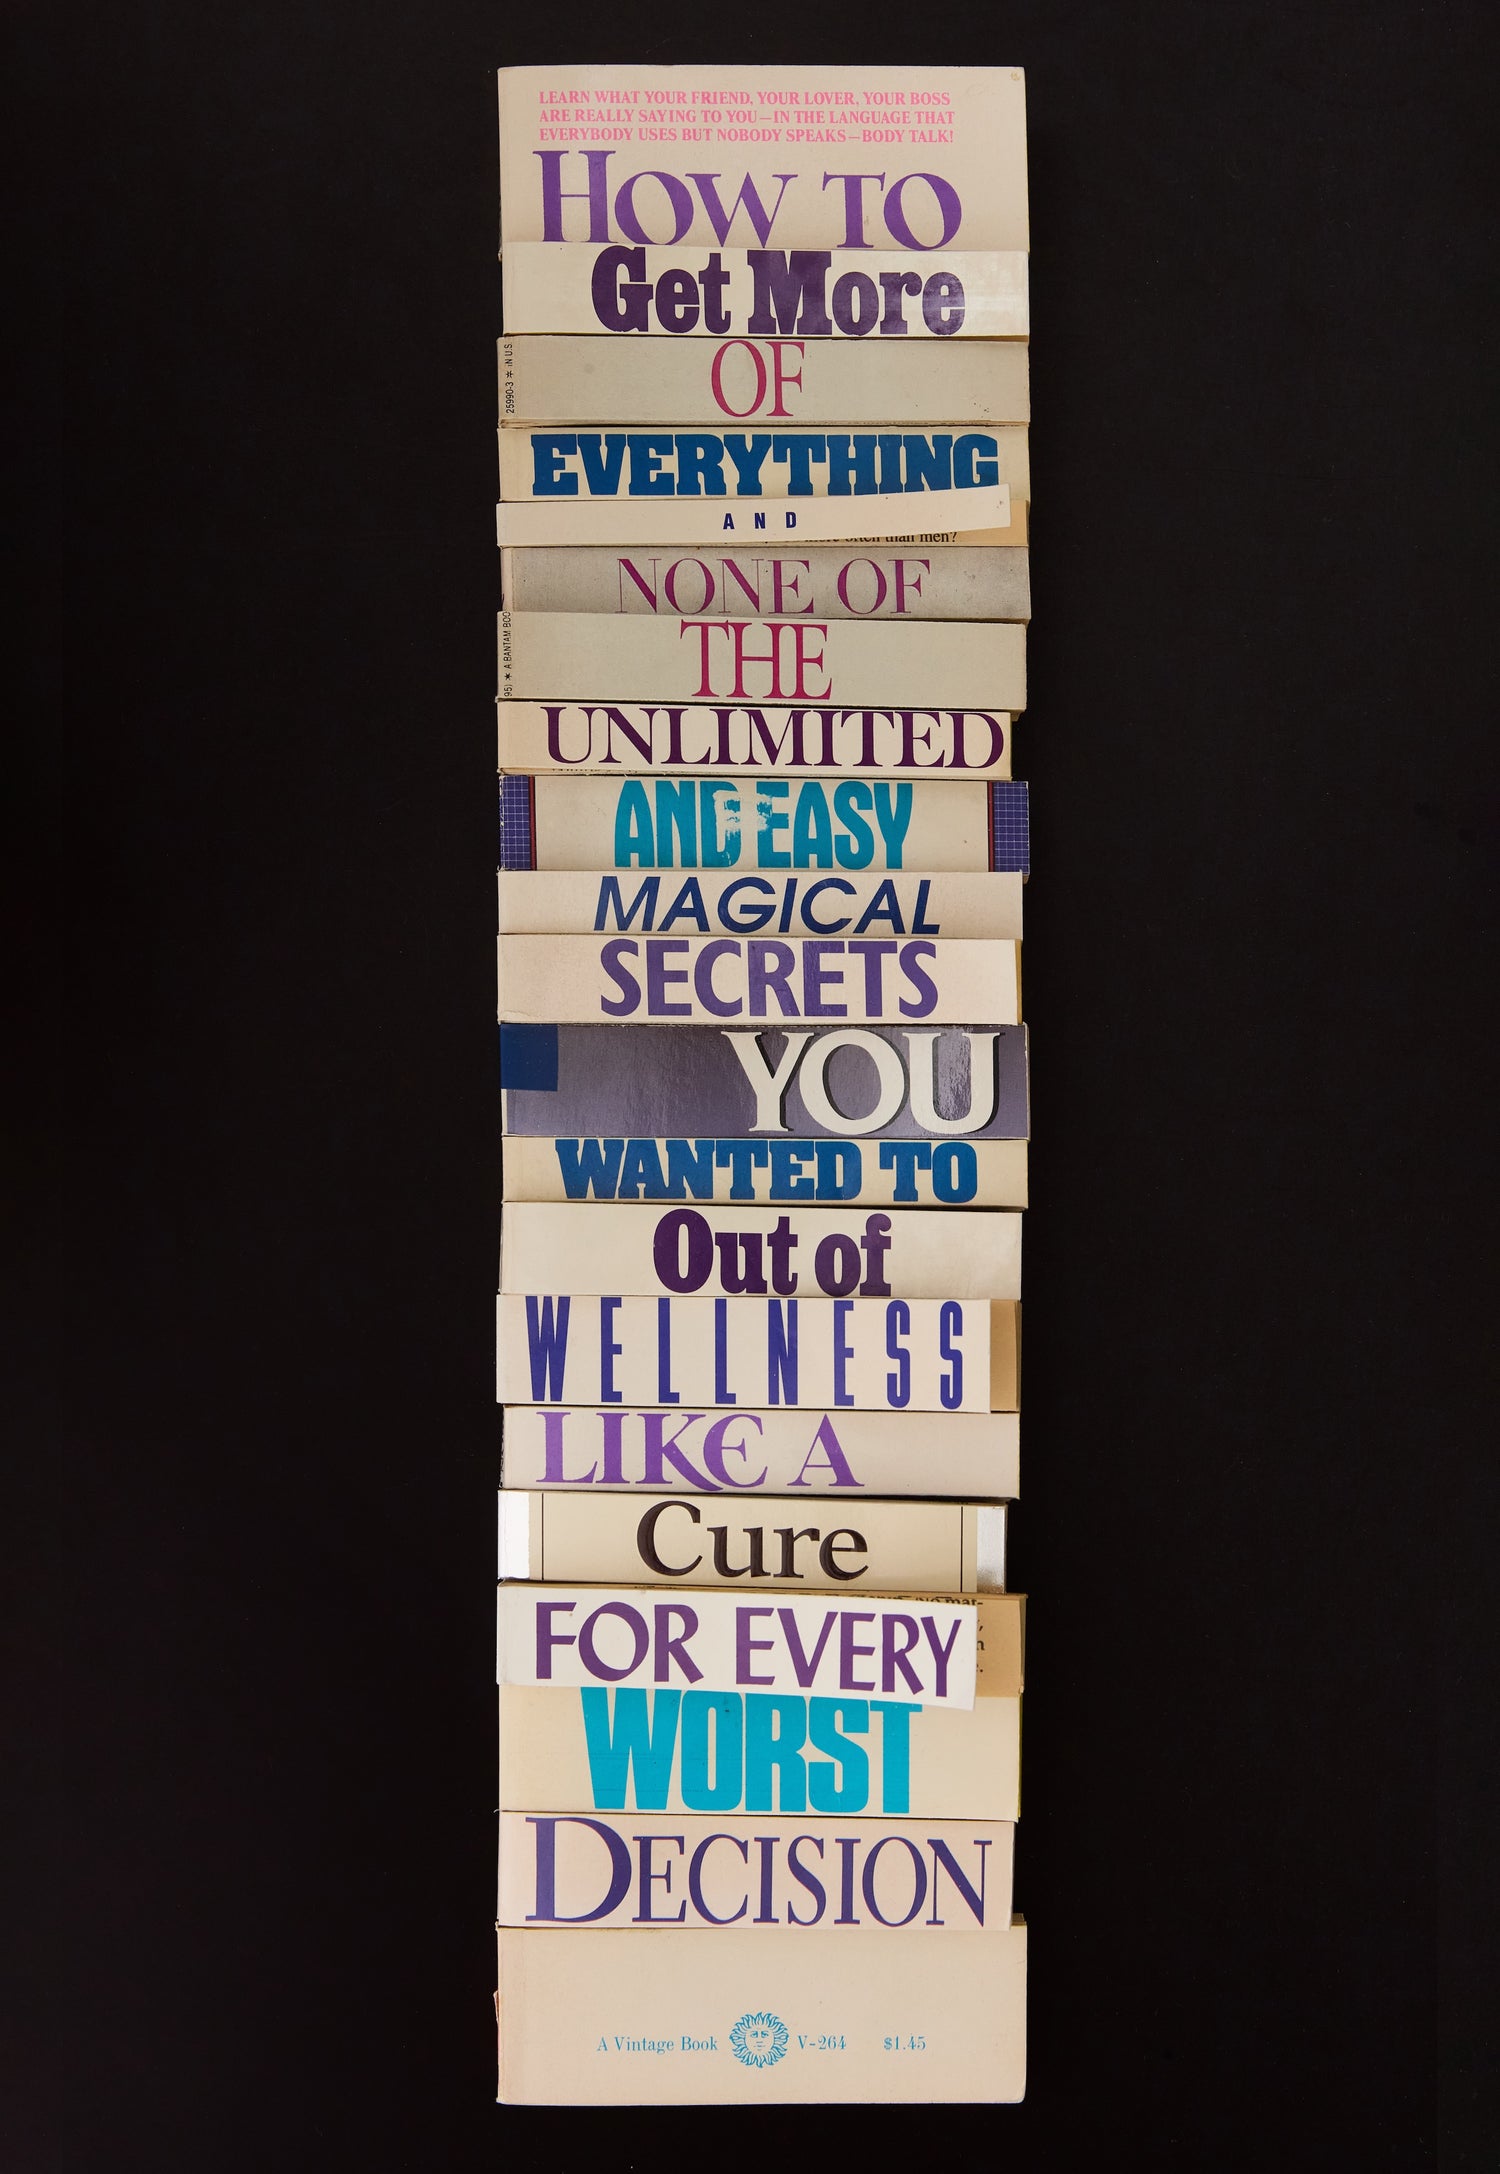 LEARN WHAT YOUR FRIEND, YOUR LOVER, YOUR BOSS
ARE REALLY SAYING TO YOU—IN THE LANGUAGE THAT
EVERYBODY USES BUT NOBODY SPEAKS—BODY TALK!
HOW TO
Get More
OF
25990-3 * IN U.S.
EVERYTHING
AND
more often than men?
NONE OF
THE
95) * A BANTAM BOO
UNLIMITED
AND EASY
MAGICAL
SECRETS
YOU
WANTED TO
Out of
WELLNESS
LIKE A
Cure
FOR EVERY
WORST
DECISION
A Vintage Book V-264 $1.45